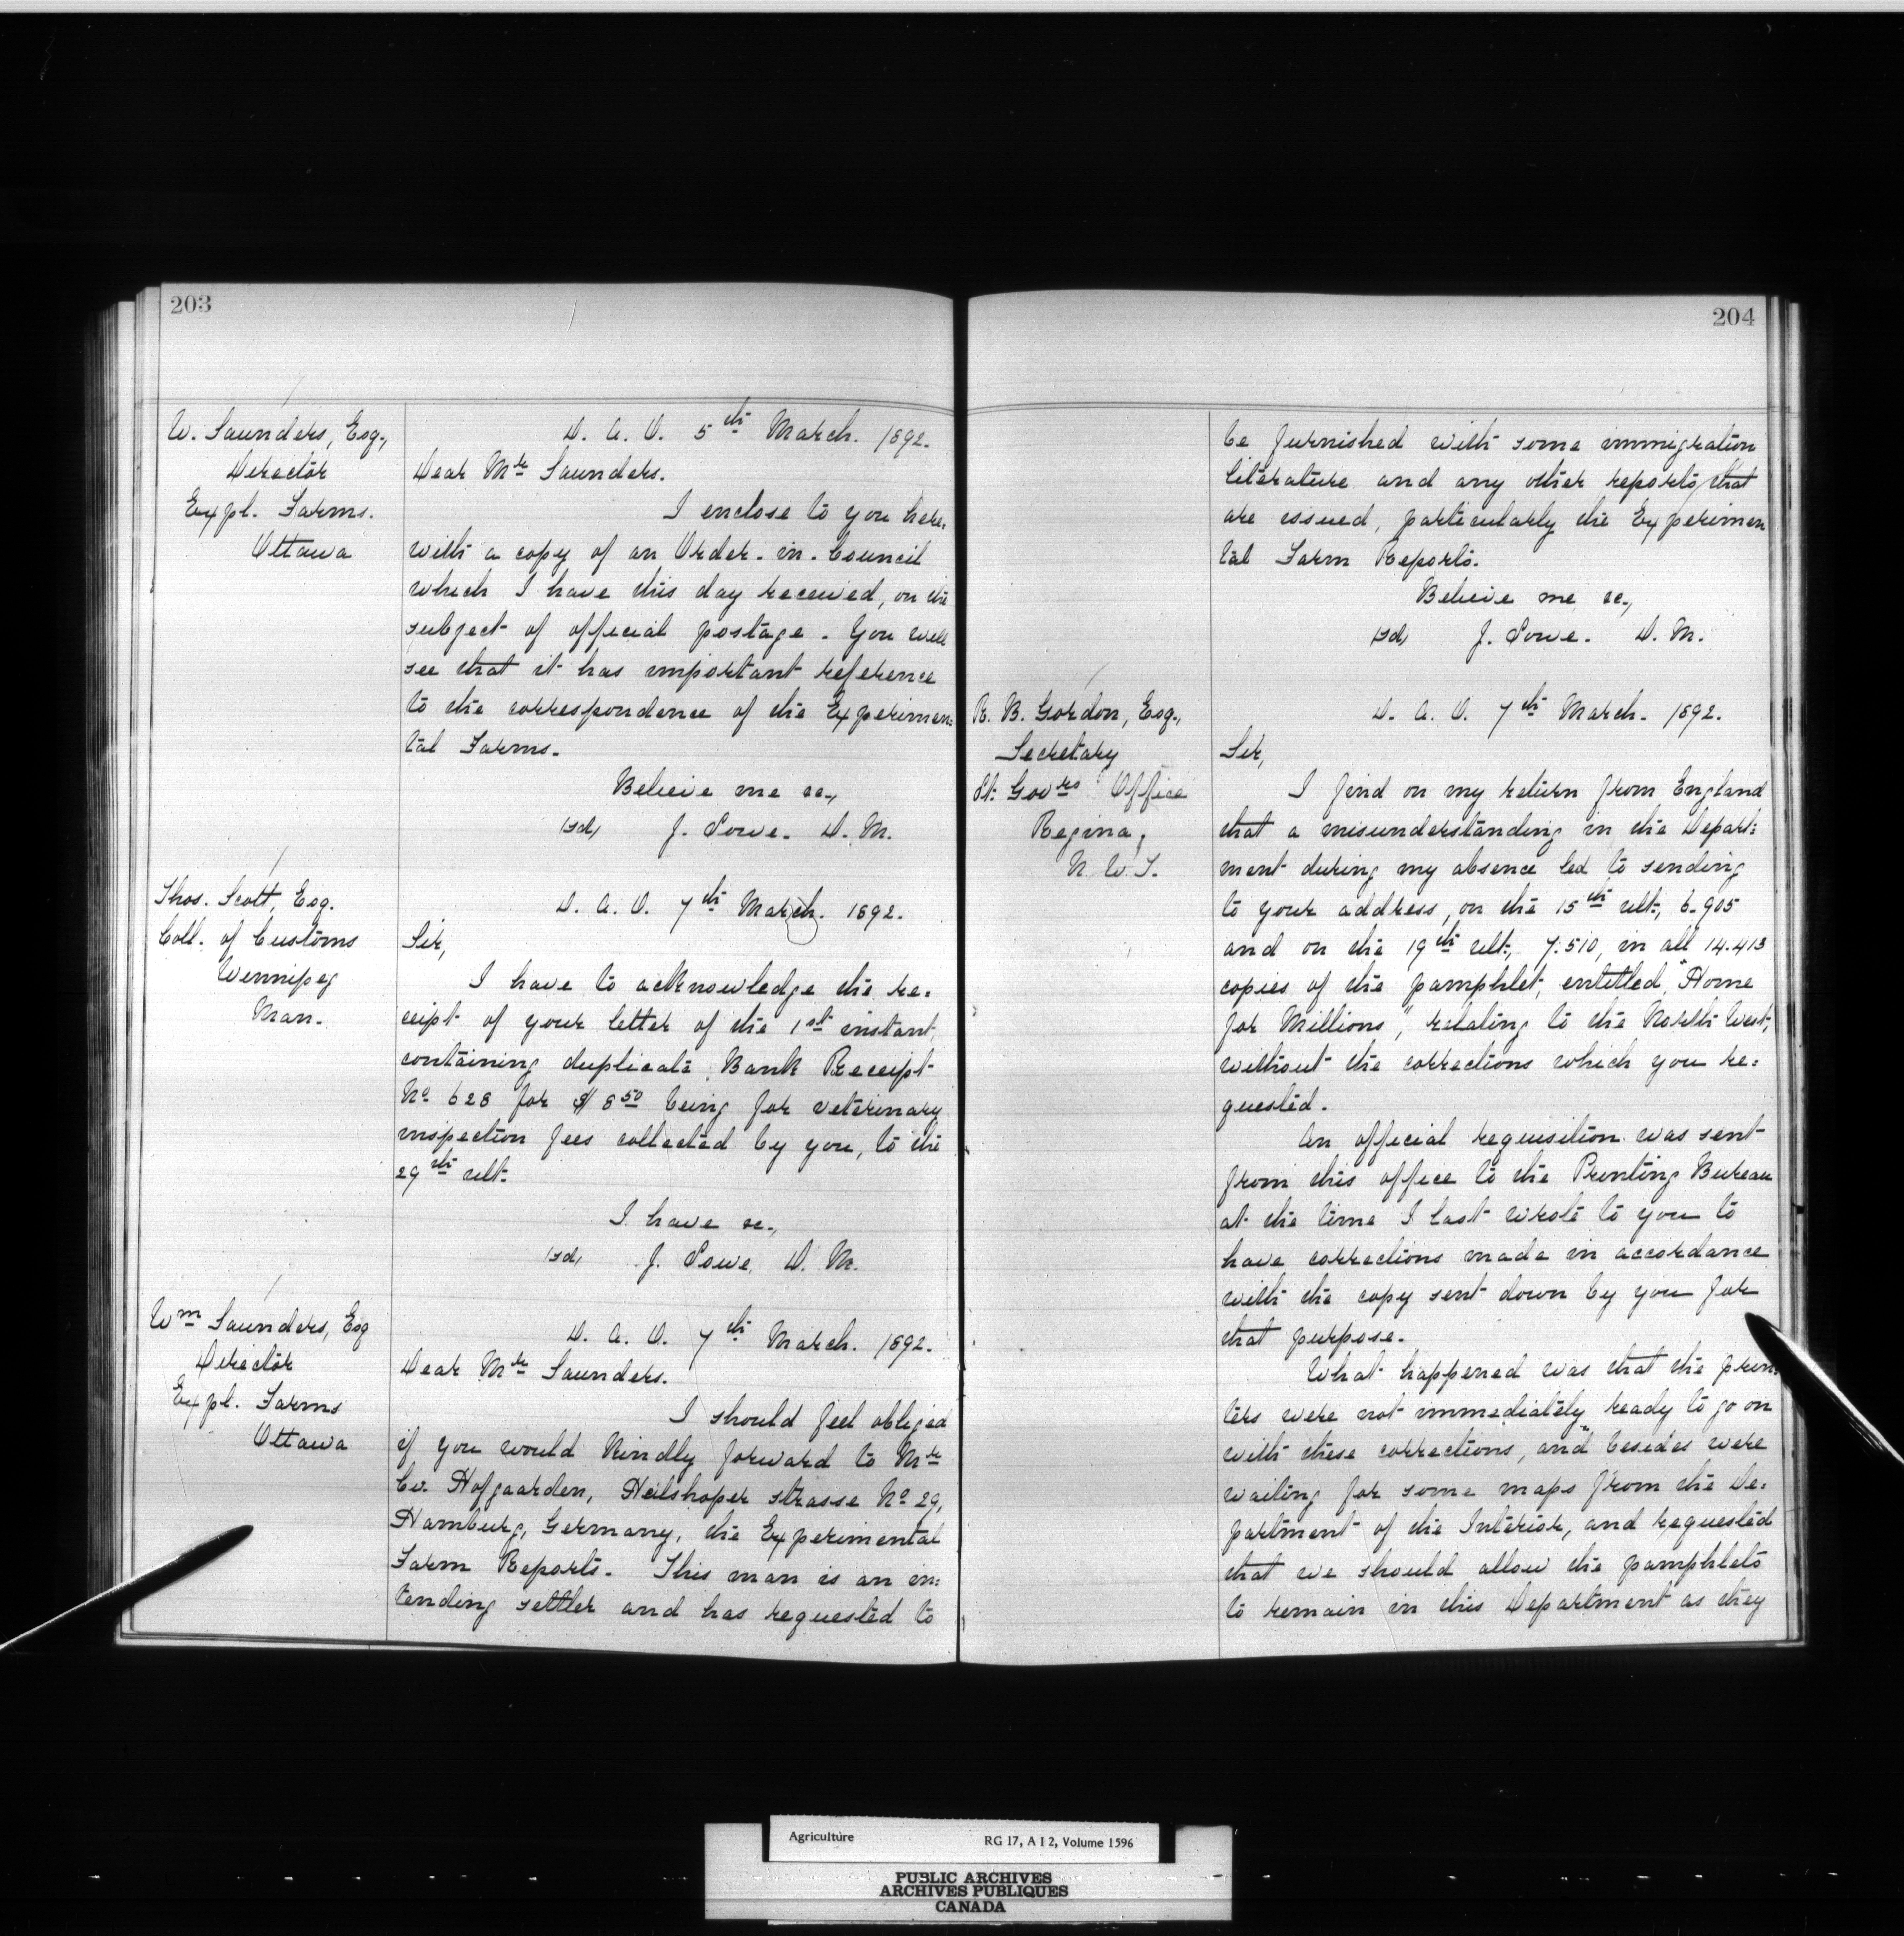 203
W. Saunders, Esq.,
Director
Expl. Farms.
Ottawa
D. A. O. 5th March. 1892.
Dear Mr Saunders.
I enclose to you here-
with a copy of an Order-in-Council
which I have this day received, on the
subject of official postage. You will
see that it has important reference
to the correspondence of the Experimen-
tal Farms.
Believe me &c.,
(sd) J. Lowe. D. M.
Thos. Scott, Esq.
Coll. of Customs
Winnipeg
Man.
D. A. O. 7th March. 1892.
Sir,
I have to acknowledge the re-
ceipt of your letter of the 1st instant,
containing duplicate Bank Receipt
No 628 for $8.50 being for veterinary
inspection fees collected by you, to the
29th ult.
I have &c.,
(sd) J. Lowe, D. M.
Wm Saunders, Esq
Director
Expl. Farms
Ottawa
D. A. O. 7th March. 1892.
Dear Mr Saunders.
I should feel obliged
if you would kindly forward to Mr
Hofgaarden, strasse No 29,
Hamburg, Germany, the Experimental
Farm Reports. This man is an in-
tending settler and has requested to
204
be furnished with some immigration
literature and any other reports that
are issued, particularly the Experimen
tal Farm Reports.
Believe me &c.,
(sd) J. Lowe. D. M.
R. B. Gordon, Esq.,
Secretary
Lt. Govrs Office
Regina,
N. W. T.
D. A. O. 7th March. 1892.
Sir,
I find on my return from England
that a misunderstanding in the Depart-
ment during my absence led to sending
to your address, on the 15th ult., 6.905
and on the 19th ult., 7.510, in all 14.413
copies of the pamphlet, entitled, "Home
for Millions," relating to the North West,
without the corrections which you re-
quested.
An official requisition was sent
from this office to the Printing Bureau
at the time I last wrote to you to
have corrections made in accordance
with the copy sent down by you for
that purpose.
What happened was that the prin-
ters were not immediately ready to go on
with these corrections, and besides were
waiting for some maps from the De-
partment of the Interior, and requested
that we should allow the pamphlets
to remain in this Department as they
Agriculture
RG 17, A I 2, Volume 1596
PUBLIC ARCHIVES
ARCHIVES PUBLIQUES
CANADA